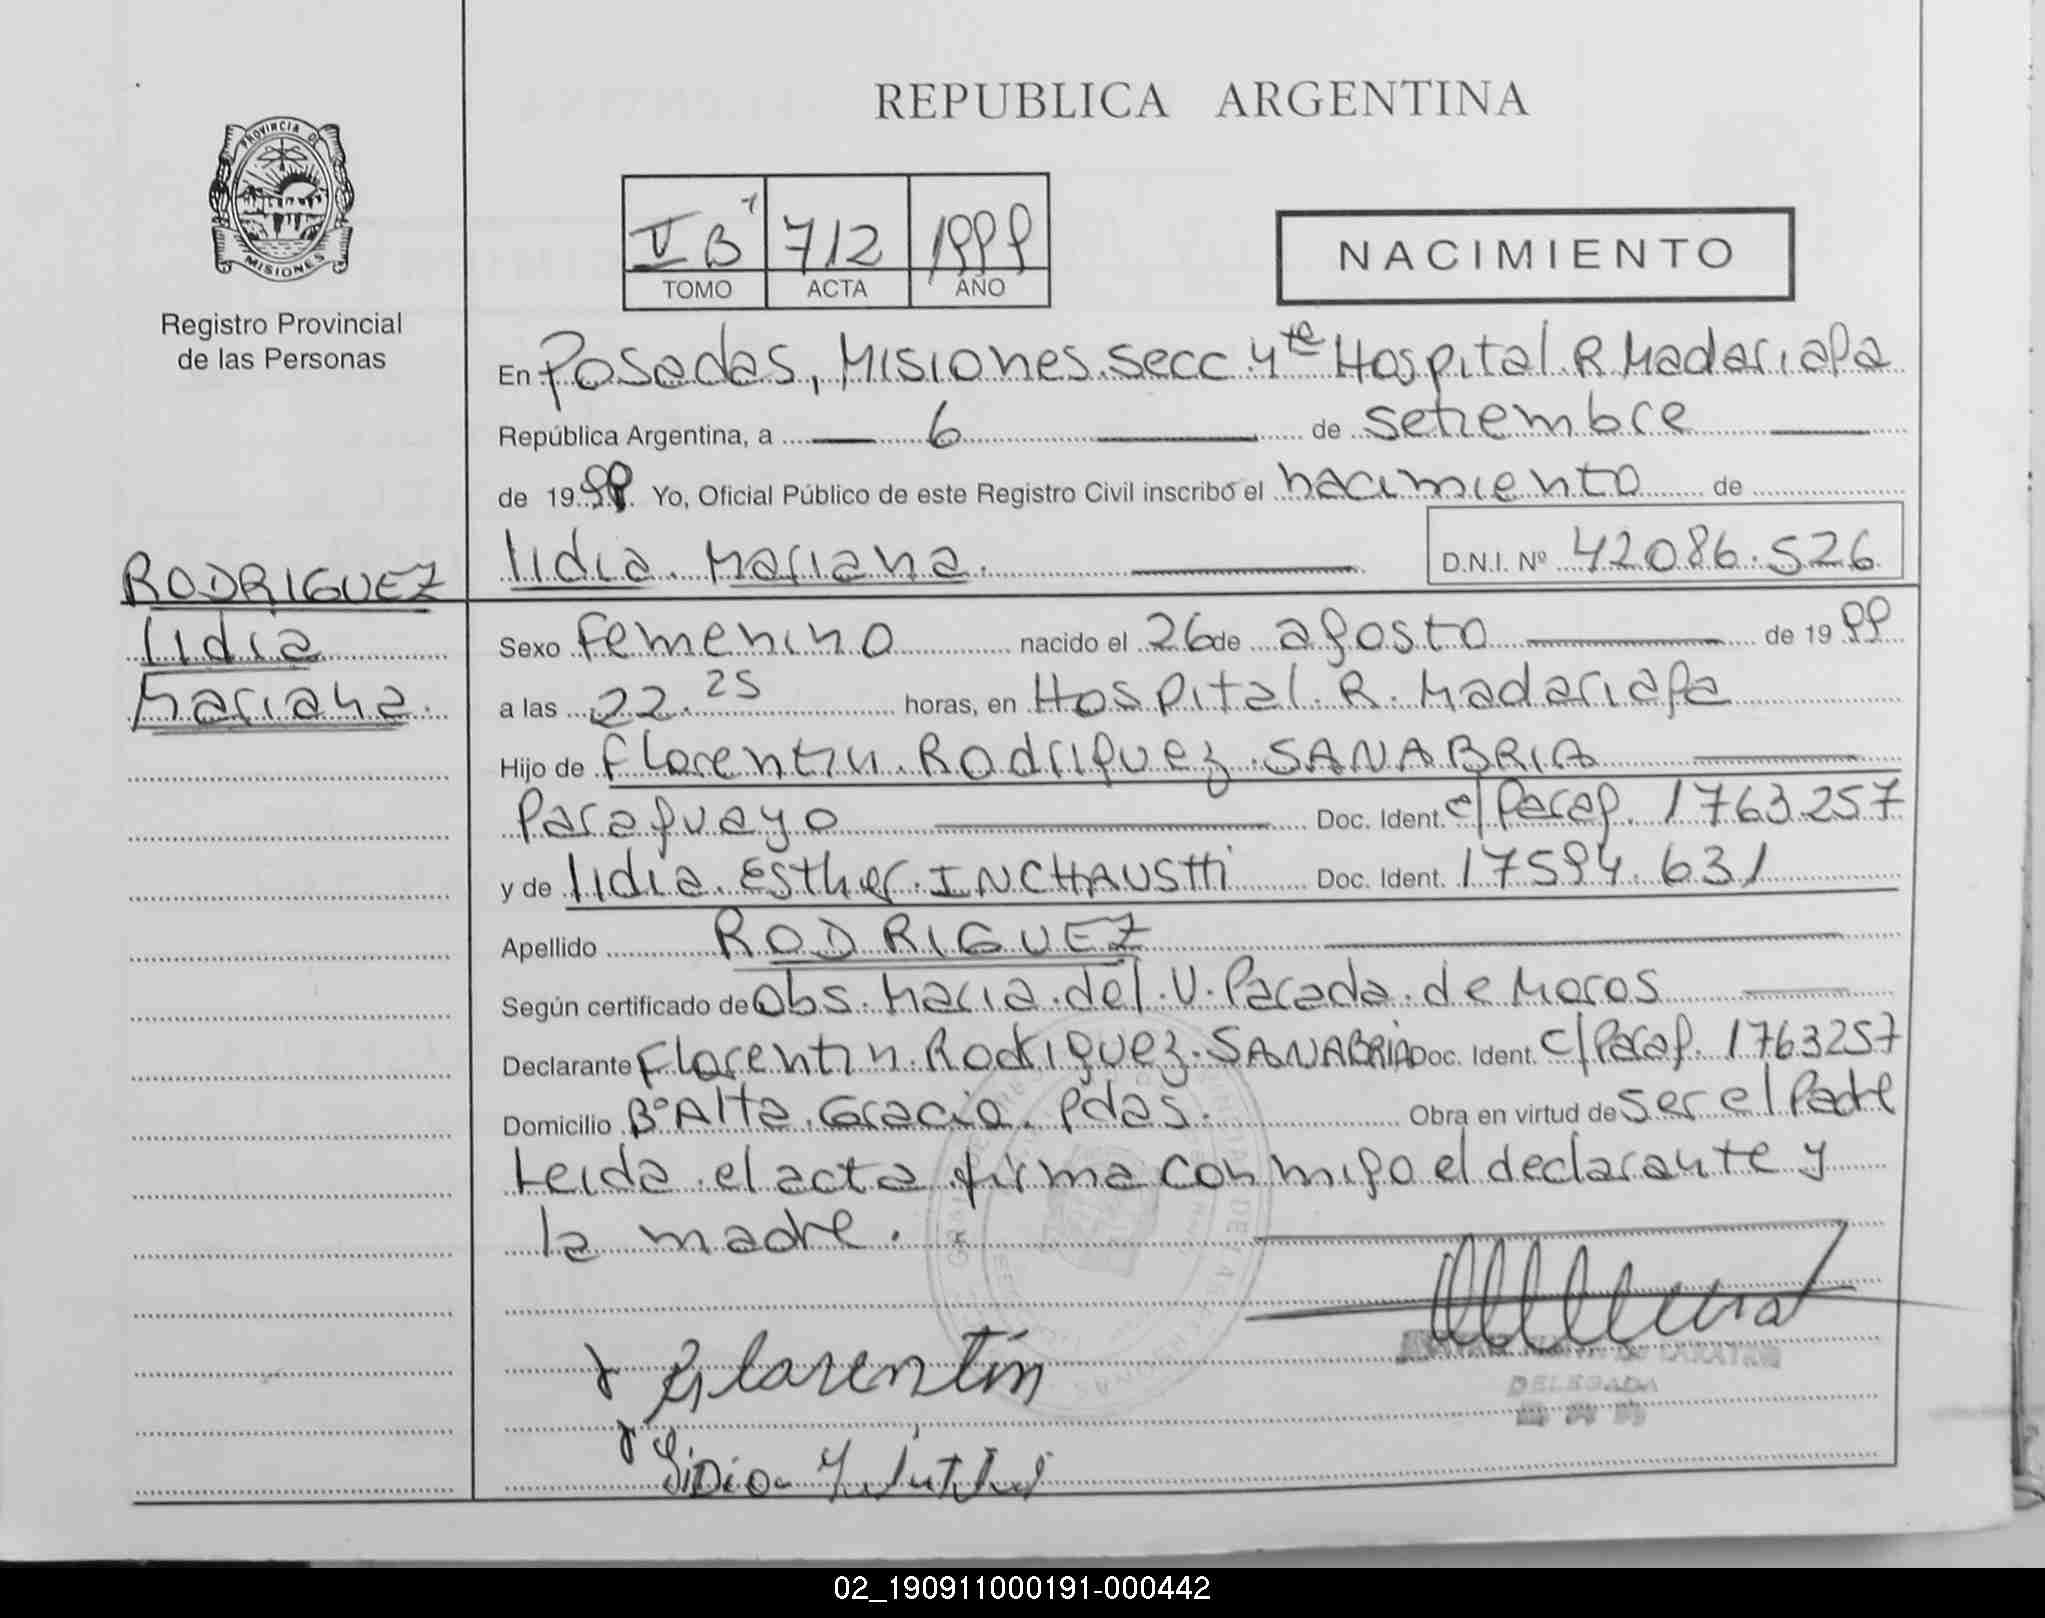 REPUBLICA ARGENTINA
PROVINCIA DE
MISIONES
Registro Provincial
de las Personas
V B 1 712 1999
TOMO ACTA AÑO
NACIMIENTO
En Posadas, Misiones. Secc. 4ta Hospital R Madariaga
República Argentina, a 6 de setiembre
de 1999. Yo, Oficial Público de este Registro Civil inscribo el nacimiento de
lidia Mariana. D.N.I. Nº 42086.526
RODRIGUEZ
lidia
Mariana.
Sexo femenino nacido el 26 de agosto de 1999
a las 22.25 horas, en Hospital. R. Madariaga
Hijo de Florentin. Rodriguez. SANABRIA
Paraguayo Doc. Ident. c/ Parag. 1763.257
y de lidia. Esther. INCHAUSTTI Doc. Ident. 17594.631
Apellido RODRIGUEZ
Según certificado de Obs. Maria. del. V. Parada. de Moros
Declarante Florentin. Rodriguez. SANABRIA Doc. Ident. c/ Parag. 1763257
Domicilio Bº Alta. Gracia. Pdas. Obra en virtud de ser el Padre
Leida el acta firma conmigo el declarante y
la madre.
Florentín
DELEGADA
02_190911000191-000442